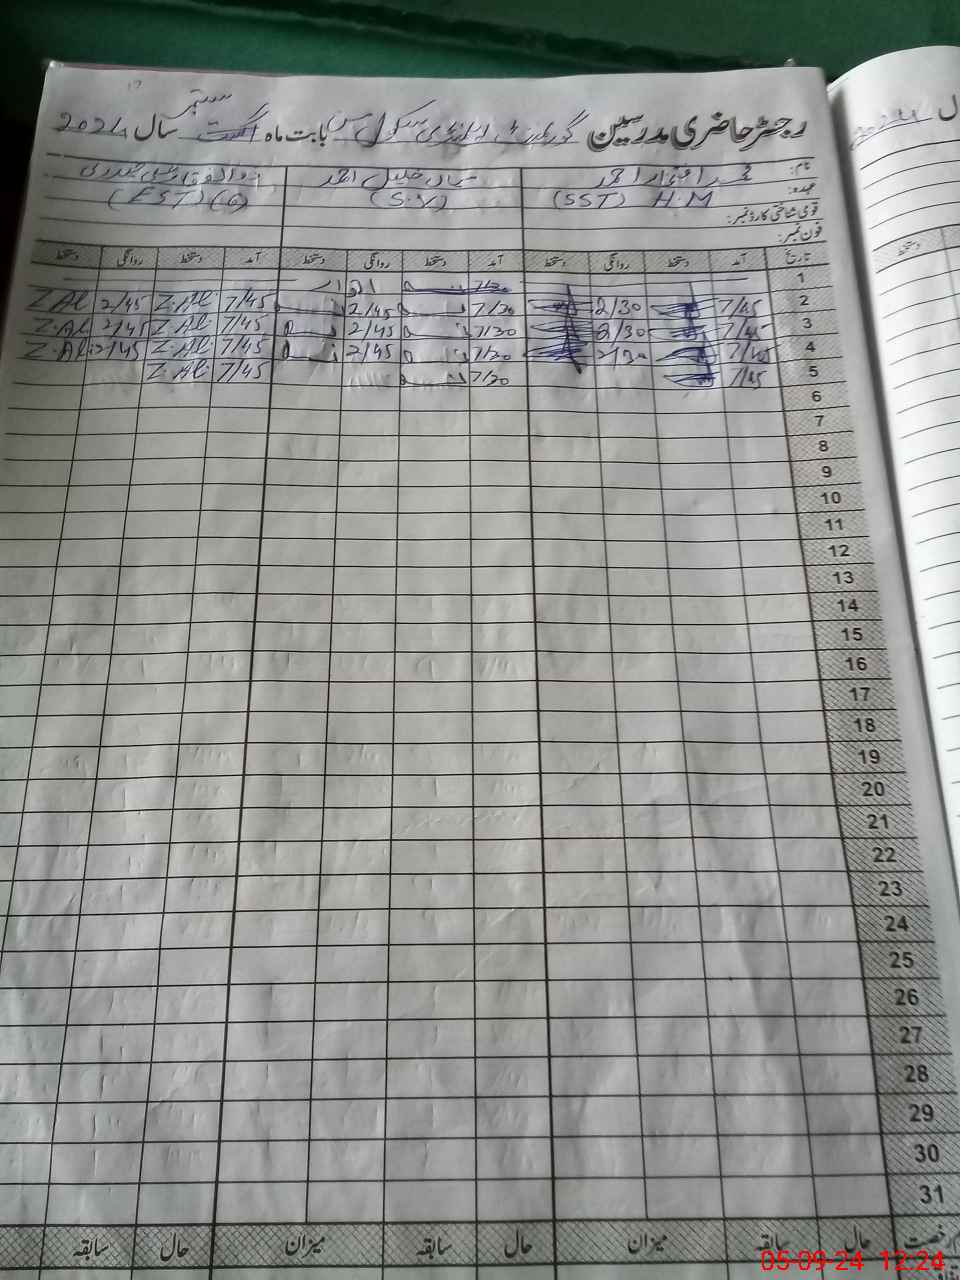 رجسٹر حاضری مدرسین گورنمنٹ ایلیمنٹری سکول بابت ماہ اگست ستمبر سال 2024
نام: احمد میاں خلیل احمد
عہدہ: (SST) H.M (S.V) (EST)
قومی شناختی کارڈ نمبر:
فون نمبر:
تاریخ آمد دستخط روانگی دستخط آمد دستخط روانگی دستخط آمد دستخط روانگی دستخط
1 اتوار
2 7/45 2/30 7/20 2/45 7/45 Z.Al 2/45 Z.Al
3 7/45 2/30 7/20 2/45 7/45 Z.Al 2/45 Z.Al
4 7/45 2/30 7/20 2/45 7/45 Z.Al 2/45 Z.Al
5 7/45 7/20 7/45 Z.Al
6
7
8
9
10
11
12
13
14
15
16
17
18
19
20
21
22
23
24
25
26
27
28
29
30
31
رخصت حال سابقہ میزان حال سابقہ میزان حال سابقہ
05-09-24 12:24